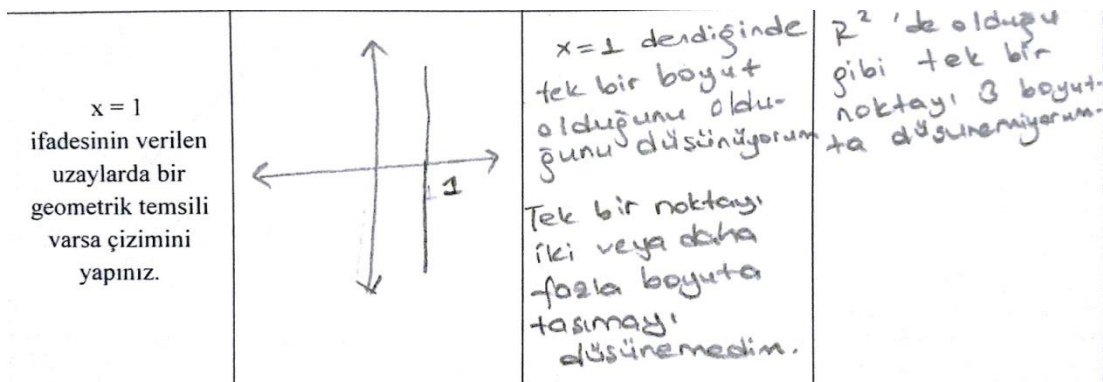 x = 1
ifadesinin verilen
uzaylarda bir
geometrik temsili
varsa çizimini
yapınız.
1
x=1 dendiğinde
tek bir boyut
olduğunu oldu-
ğunu düşünüyorum
Tek bir noktayı
iki veya daha
fazla boyuta
taşımayı
düşünemedim.
R² 'de olduğu
gibi tek bir
noktayı 3 boyut-
ta düşünemiyorum.